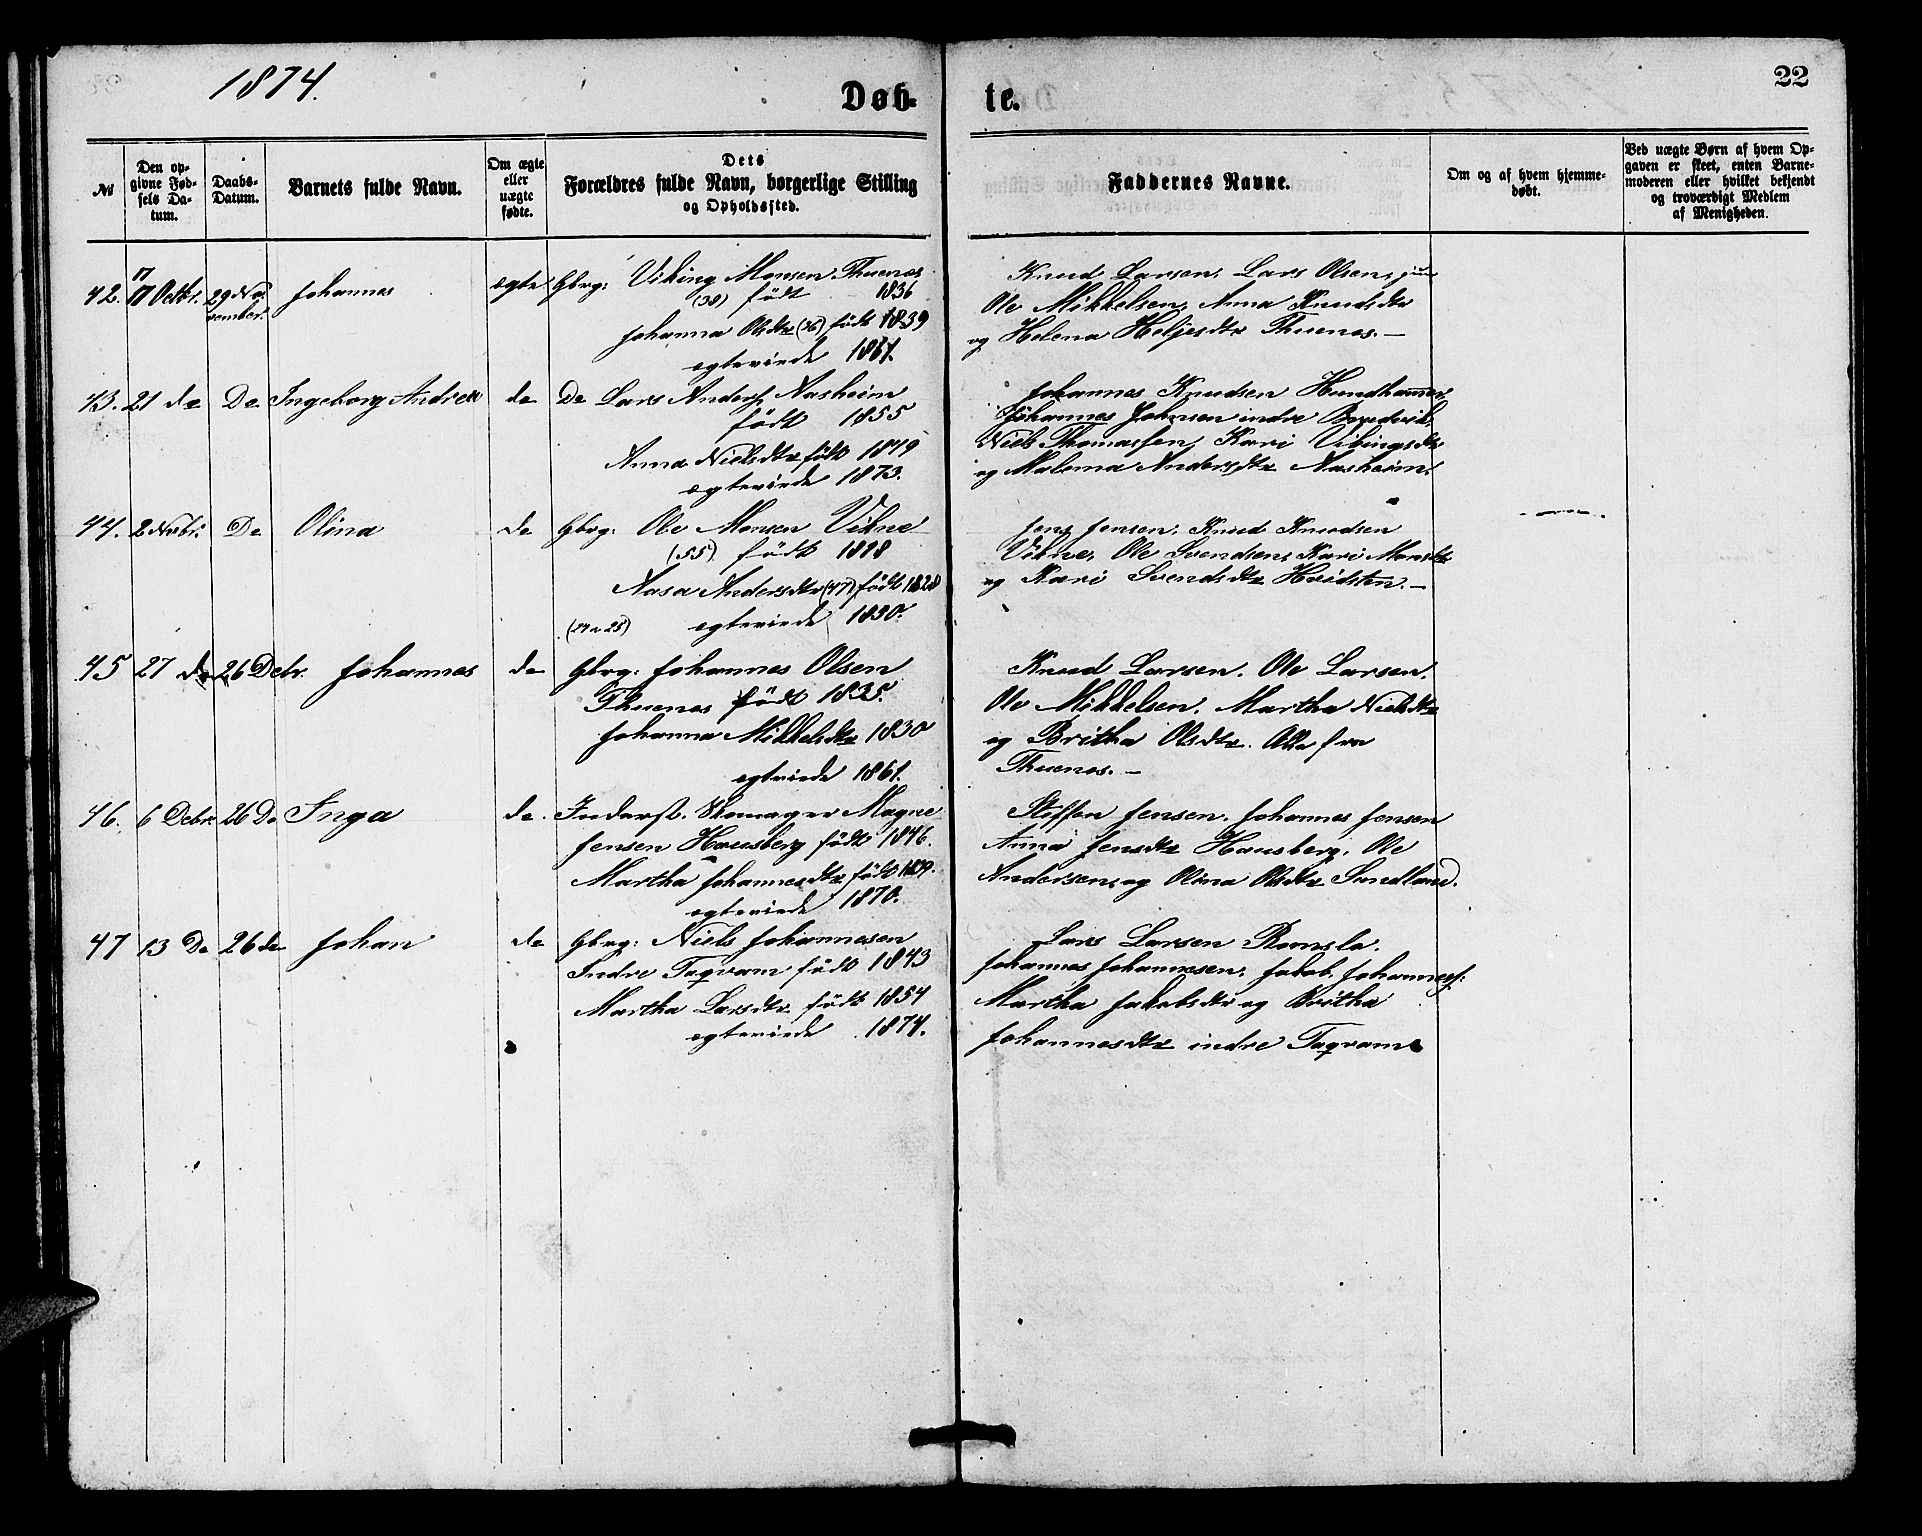 1874.
Døb-
te.
22
No
Den op-
givne Fød-
sels Da-
tum.
Daabs-
Datum.
Barnets fulde Navn.
Om ægte
eller
uægte
fødte.
Dets
Forældres fulde Navn, borgerlige Stilling
og Opholdssted.
Faddernes Navne.
Om og af hvem hjemme-
døbt.
Ved uægte Børn af hvem Op-
gaven er skeet, enten Barne-
moderen eller hvilket bekjendt
og troværdigt Medlem
af Menigheden.
42. 17 Octbr. 29 No-
vember.
Johannes
egte
Gbrg: Viking Monsen Thuenes
(38) født 1836
Johanna Olsdtr (36) født 1839
egteviede 1861.
Knud Larsen, Lars Olsen,
Ole Mikkelsen, Anna Knudsdtr
og Helena Heljesdtr Thuenes. —
43. 21 de De Ingeborg Andrea de
De Lars Anders. Aasheim
født 1855
Anna Nielsdtr født 1849
egteviede 1873.
Johannes Knudsen Hundhammer
Johannes Johnsen indre
Niels Thomassen, Kari Vikingsdtr
og Malena Andersdtr Aasheim.
44. 2 Novbr. De Olina de
Gbrg: Ole Monsen Vikne
(55) født 1818
Aasa Andersdtr (47) født 1828
egteviede 1850.
Jens Jensen, Knud Knudsen
Vikne, Ole Svendsen, Kari Monsdtr
og Kari Svendsdtr Hvidsten. —
45 27 de 26 Debr. Johannes de
Gbrg: Johannes Olsen
Thuenes født 1835.
Johanna Mikkelsdtr 1830
egteviede 1861.
Knud Larsen. Ole Larsen.
Ole Mikkelsen. Martha Nielsdtr
og Britha Olsdtr. Alle fra
Thuenes. —
46. 6 Debr. 26 De Inga de.
Inderst. Skomager Magne
Jensen Hausberg født 1846.
Martha Johannesdtr født
egteviede 1870.
Steffen Jensen. Johannes Jensen
Anna Jensdtr Hausberg. Ole
Andersen, og Olina Olsdtr Sundland.
47 13 De 26 de Johan de
Gbrg: Niels Johannesen
Indre Taqvam født 1843
Martha Larsdtr født 1854
egteviede 1874.
Lars Larsen
Johannes Johannesen, Jakob Johannes.
Martha Jakobsdtr og Britha
Johannesdtr indre Taqvam